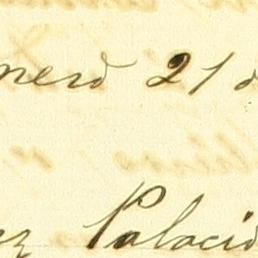 nero 21 d
ez Palacio